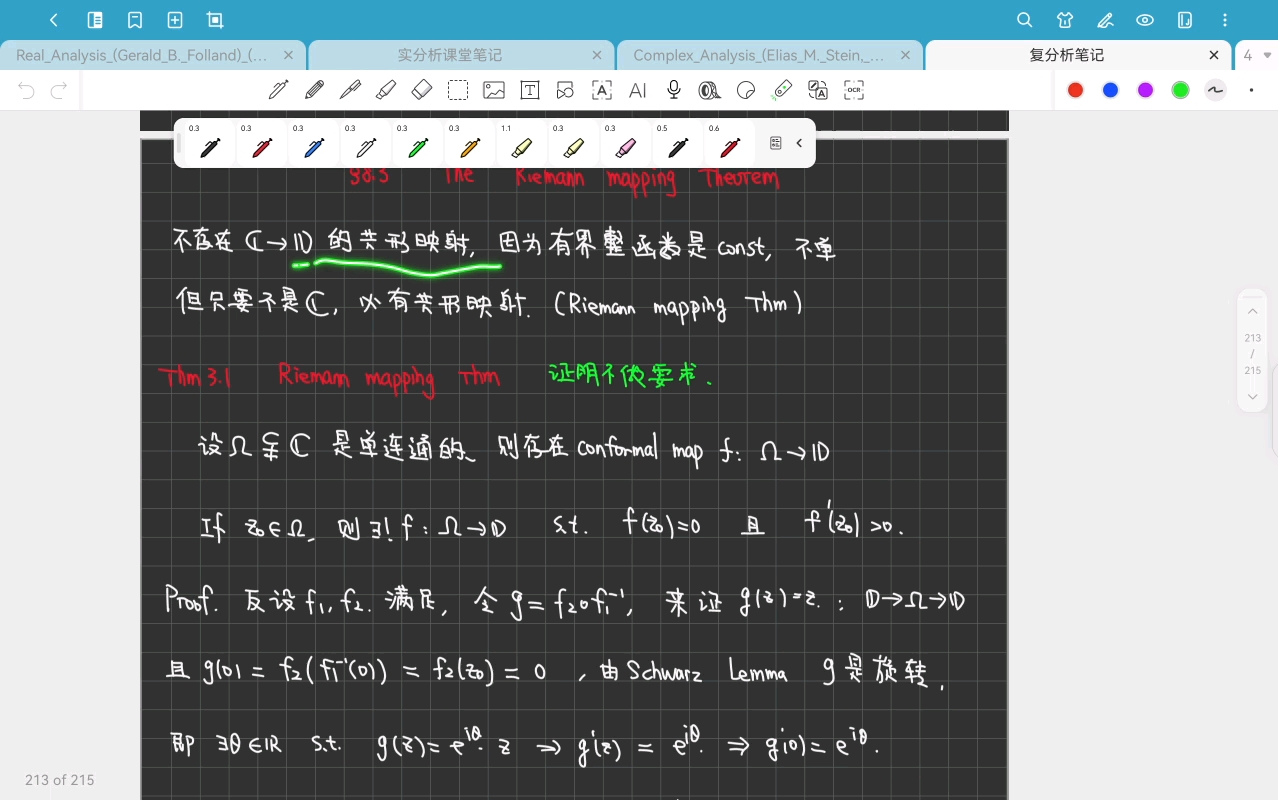 Real_Analysis_(Gerald_B._Folland)_(...
实分析课堂笔记
Complex_Analysis_(Elias_M._Stein,_...
复分析笔记
4
T
A
AI
OCR
0.3 0.3 0.3 0.3 0.3 0.3 1.1 0.3 0.3 0.5 0.6
§8.3 The Riemann mapping Theorem
不存在 ℂ→𝔻 的共形映射, 因为有界整函数是 const, 不单
但只要不是ℂ, 必有共形映射. (Riemann mapping Thm)
Thm 3.1 Riemann mapping Thm 证明不做要求.
设 Ω ⫋ ℂ 是单连通的、则存在 conformal map f: Ω→𝔻
If z₀∈Ω, 则∃! f: Ω→𝔻 s.t. f(z₀)=0 且 f'(z₀)>0.
Proof. 反设 f₁, f₂. 满足, 令 g = f₂∘f₁⁻¹, 来证 g(z)=z. : 𝔻→Ω→𝔻
且 g(0) = f₂(f₁⁻¹(0)) = f₂(z₀) = 0 , 由 Schwarz Lemma g 是旋转.
即 ∃θ∈ℝ s.t. g(z)=e^{iθ}·z ⇒ g'(z) = e^{iθ}. ⇒ g'(0)=e^{iθ}.
213
/
215
213 of 215